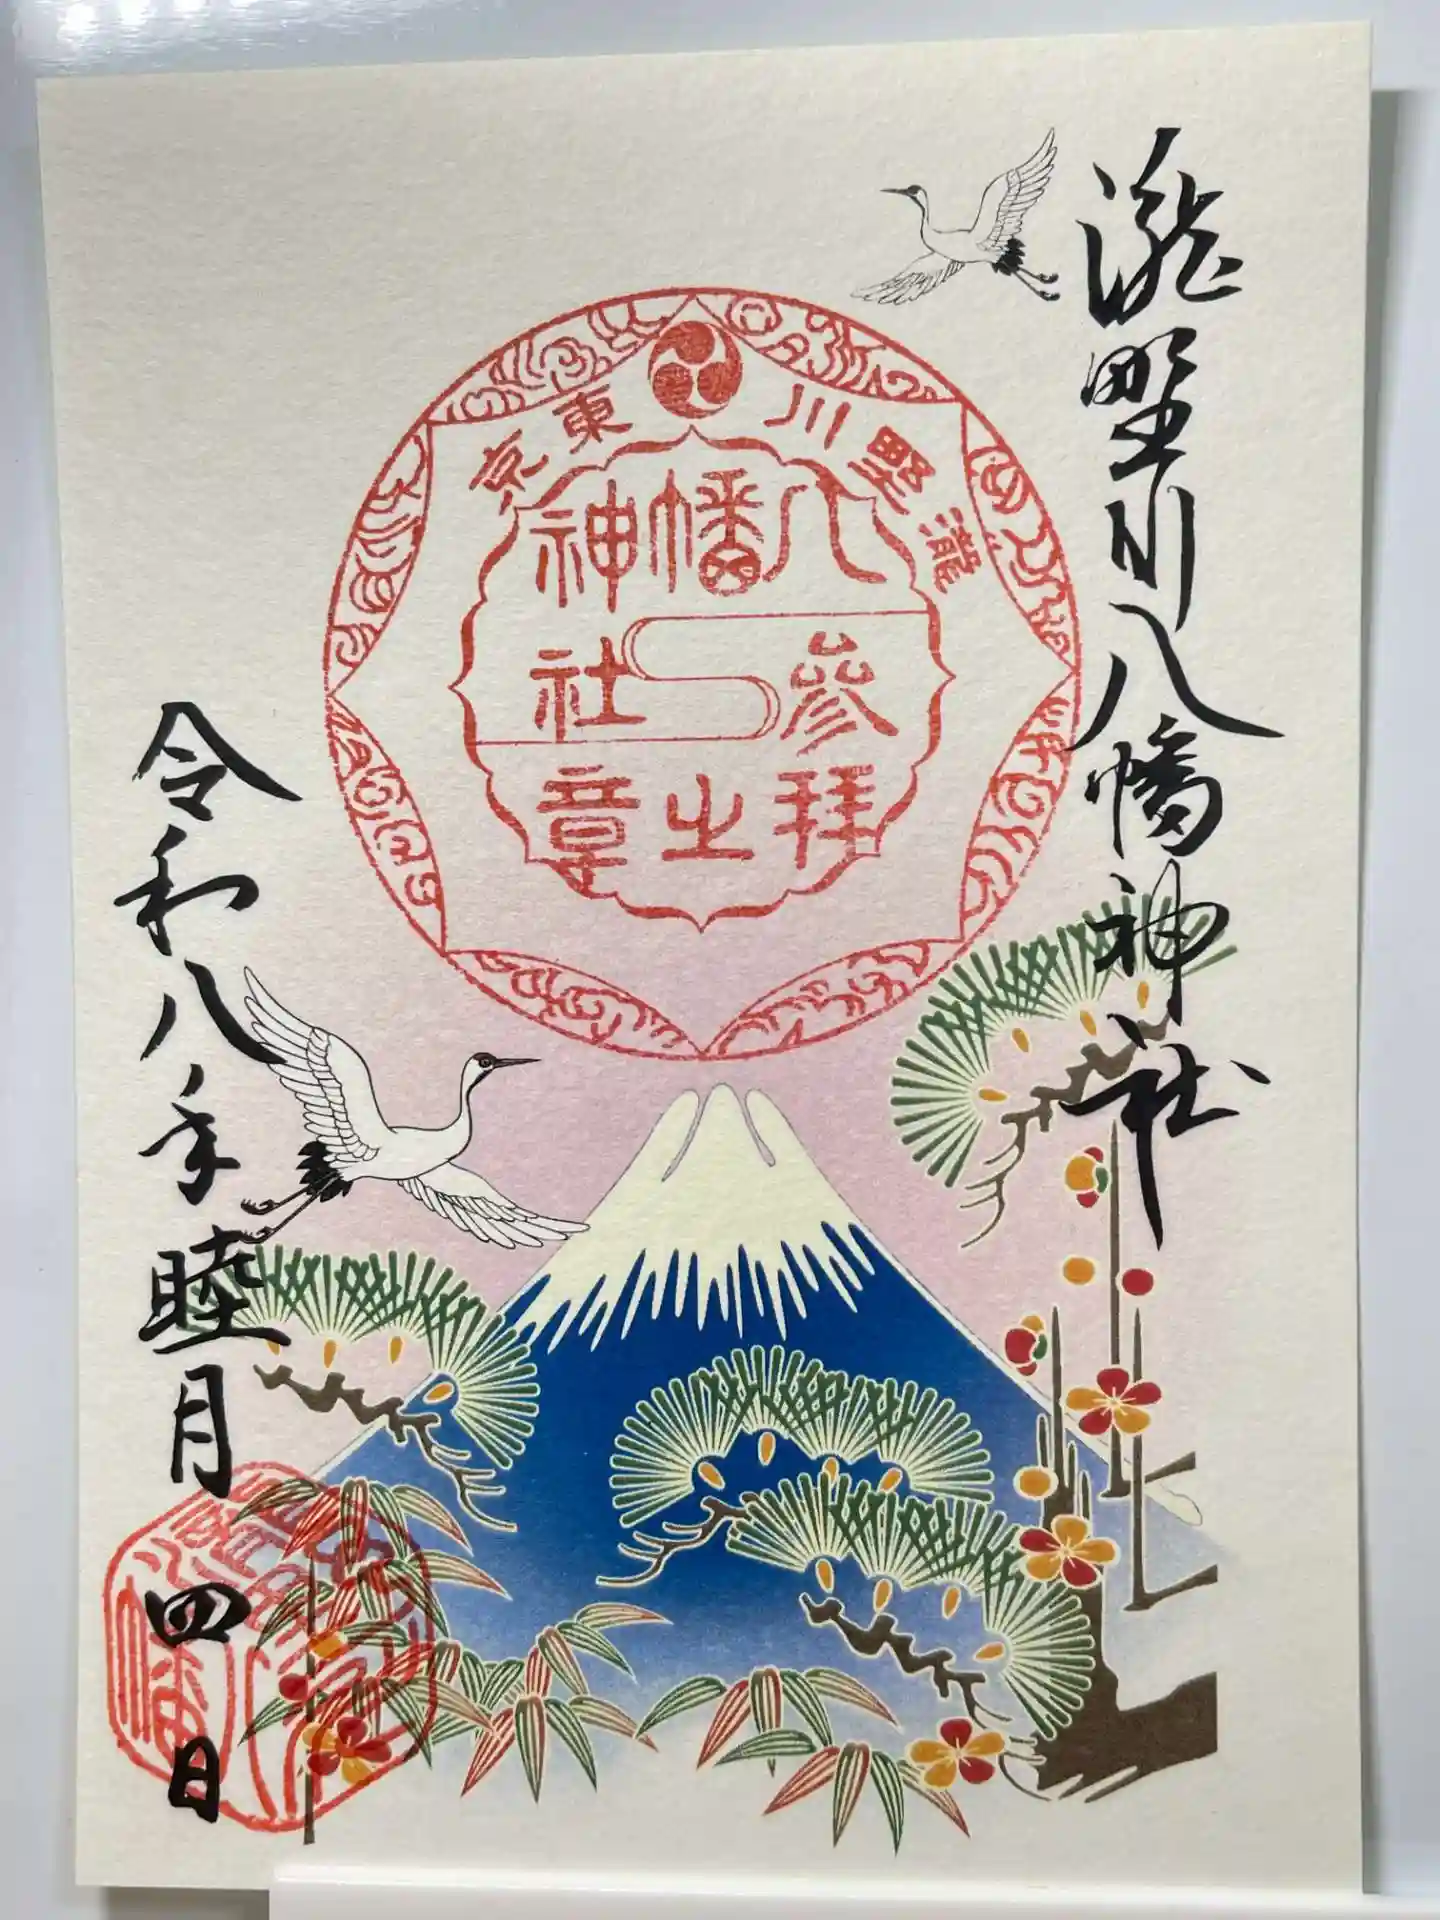 瀧野川八幡神社
瀧野川
東京
八幡神社
参拝之章
令和八年睦月四日